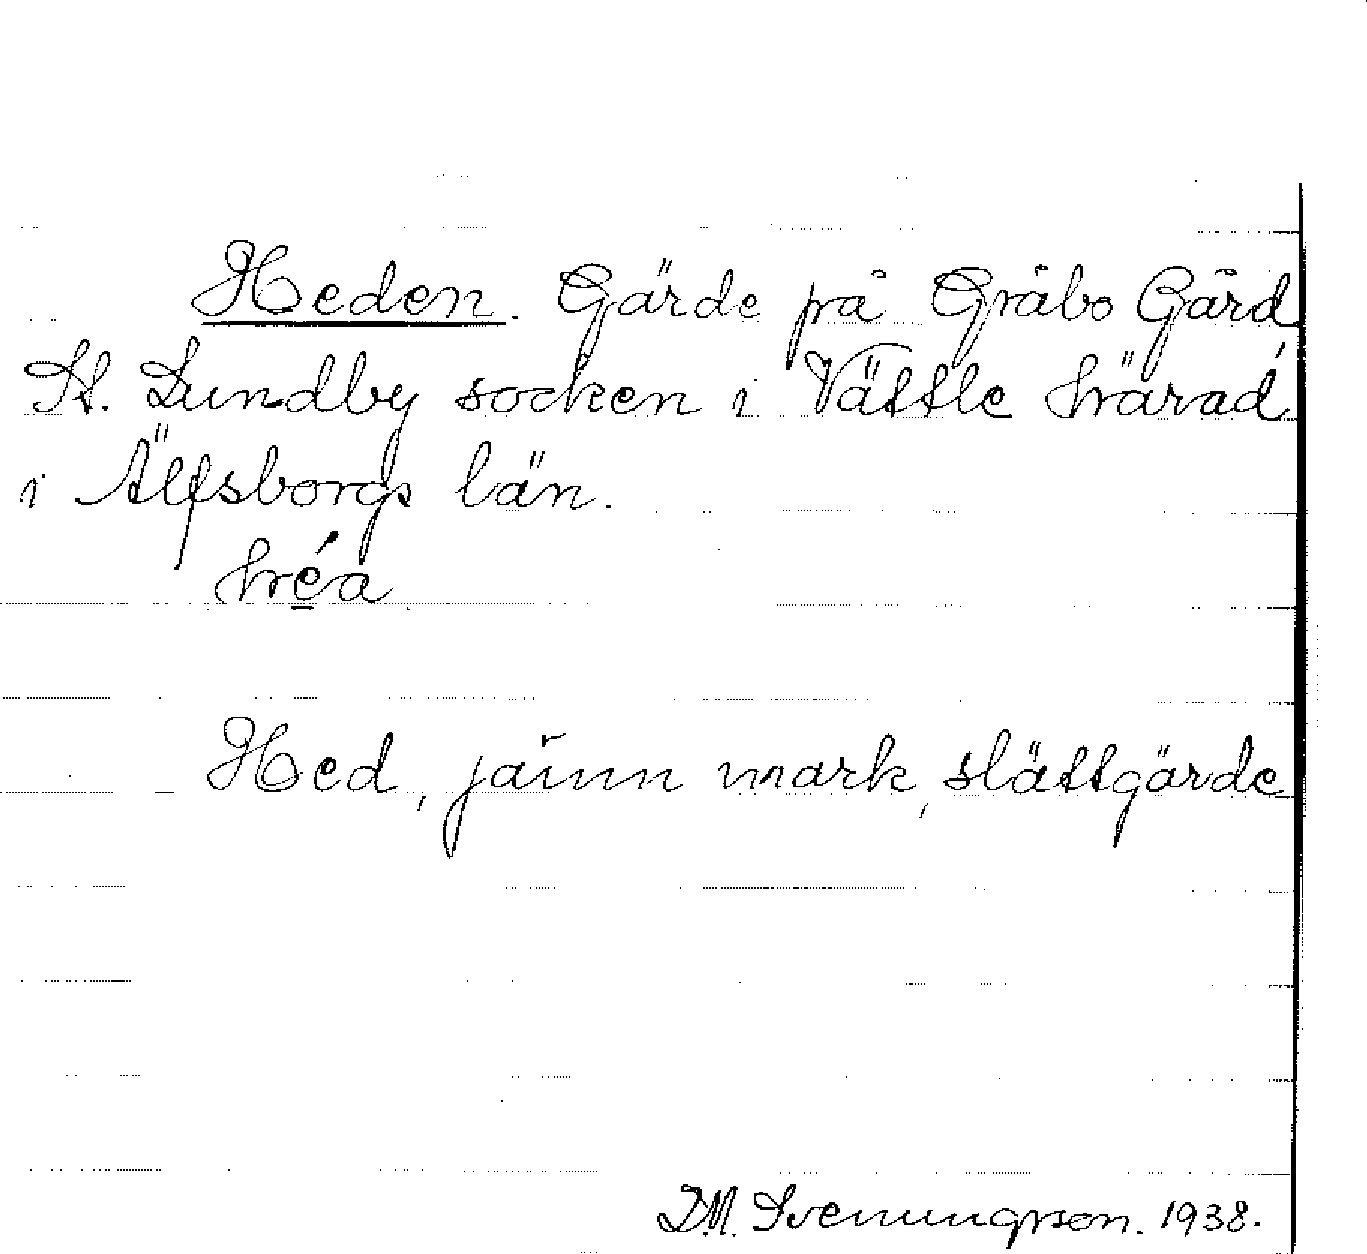 Heden. Gärde på Gråbo Gård
St. Lundby socken i Vättle härad
i Älfsborgs län.
héa
Hed, jämn mark, slättgärde
D.M. Svenungson. 1938.